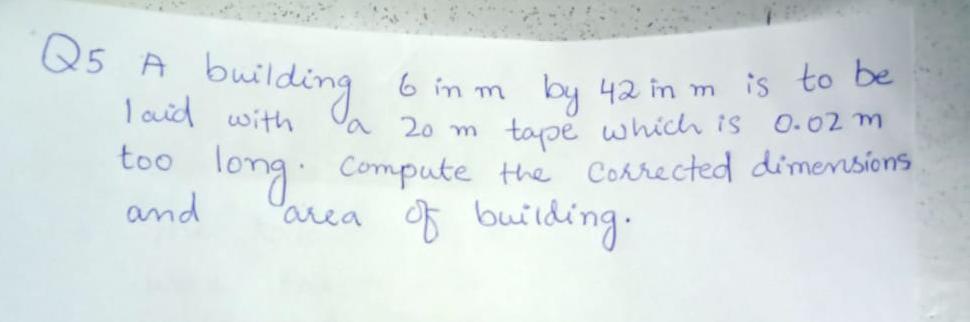 Q5 A building 6 in m by 42 in m is to be
laid with a 20 m tape which is 0.02 m
too long. Compute the corrected dimensions
and area of building.